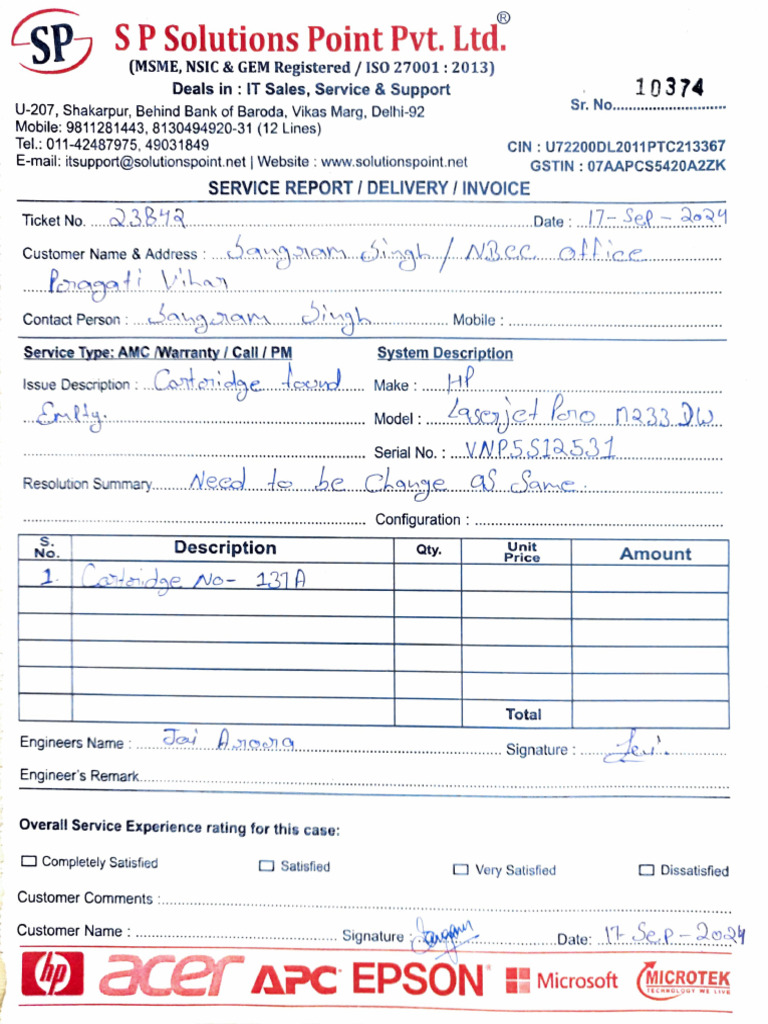 SP
S P Solutions Point Pvt. Ltd.®
(MSME, NSIC & GEM Registered / ISO 27001 : 2013)
Deals in : IT Sales, Service & Support
10374
Sr. No.
U-207, Shakarpur, Behind Bank of Baroda, Vikas Marg, Delhi-92
Mobile: 9811281443, 8130494920-31 (12 Lines)
Tel.: 011-42487975, 49031849
CIN : U72200DL2011PTC213367
E-mail: itsupport@solutionspoint.net | Website : www.solutionspoint.net
GSTIN : 07AAPCS5420A2ZK
SERVICE REPORT / DELIVERY / INVOICE
Ticket No. 23842 Date : 17-Sep-2024
Customer Name & Address : Sangram Singh / NBCC office
Pragati Vihar
Contact Person : Sangram Singh Mobile :
Service Type: AMC /Warranty / Call / PM System Description
Issue Description : Cartridge found Make : HP
Emlty. Model : Laserjet Pro M233 DW
Serial No. : VNP5S12531
Resolution Summary Need to be Change as Same.
Configuration :
S. No. Description Qty. Unit Price Amount
1. Cartridge No- 137A
Total
Engineers Name : Jai Arora Signature :
Engineer's Remark
Overall Service Experience rating for this case:
Completely Satisfied Satisfied Very Satisfied Dissatisfied
Customer Comments :
Customer Name : Signature : Date: 17-Sep-2024
hp acer APC EPSON Microsoft MICROTEK
TECHNOLOGY WE LIVE